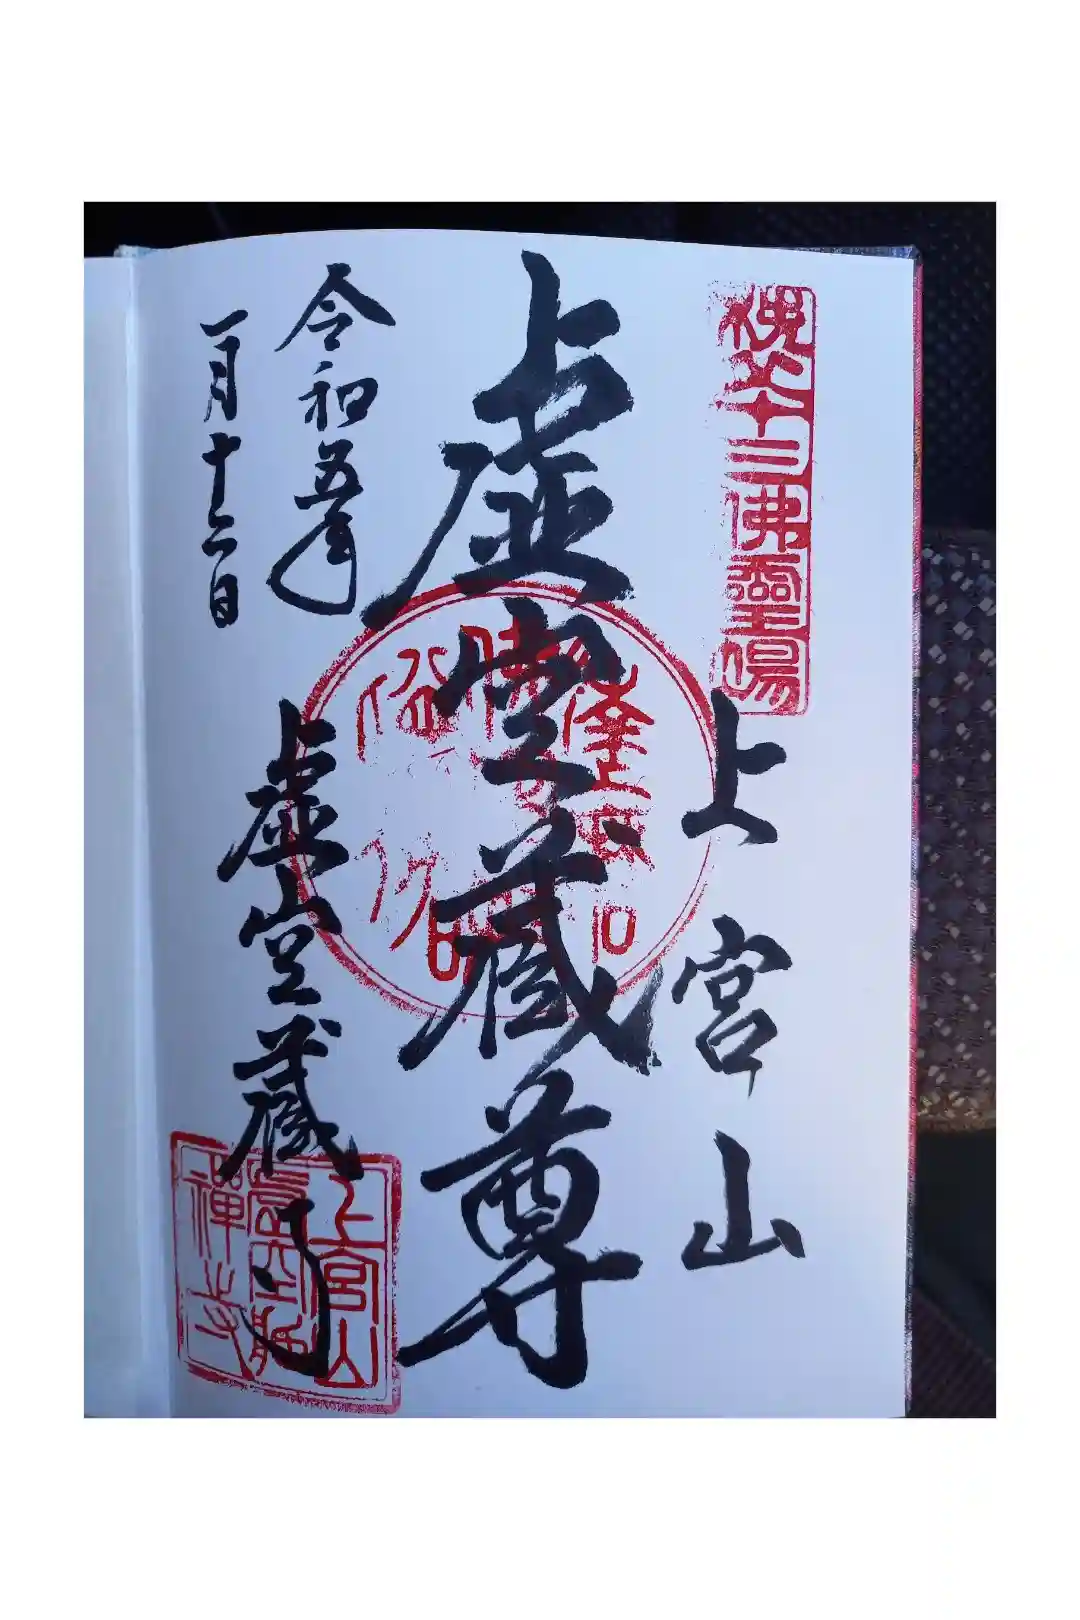 十三佛霊場
上宮山
虚空蔵尊
令和五年
一月十二日
虚空蔵寺
上宮山
虚空蔵
禅寺